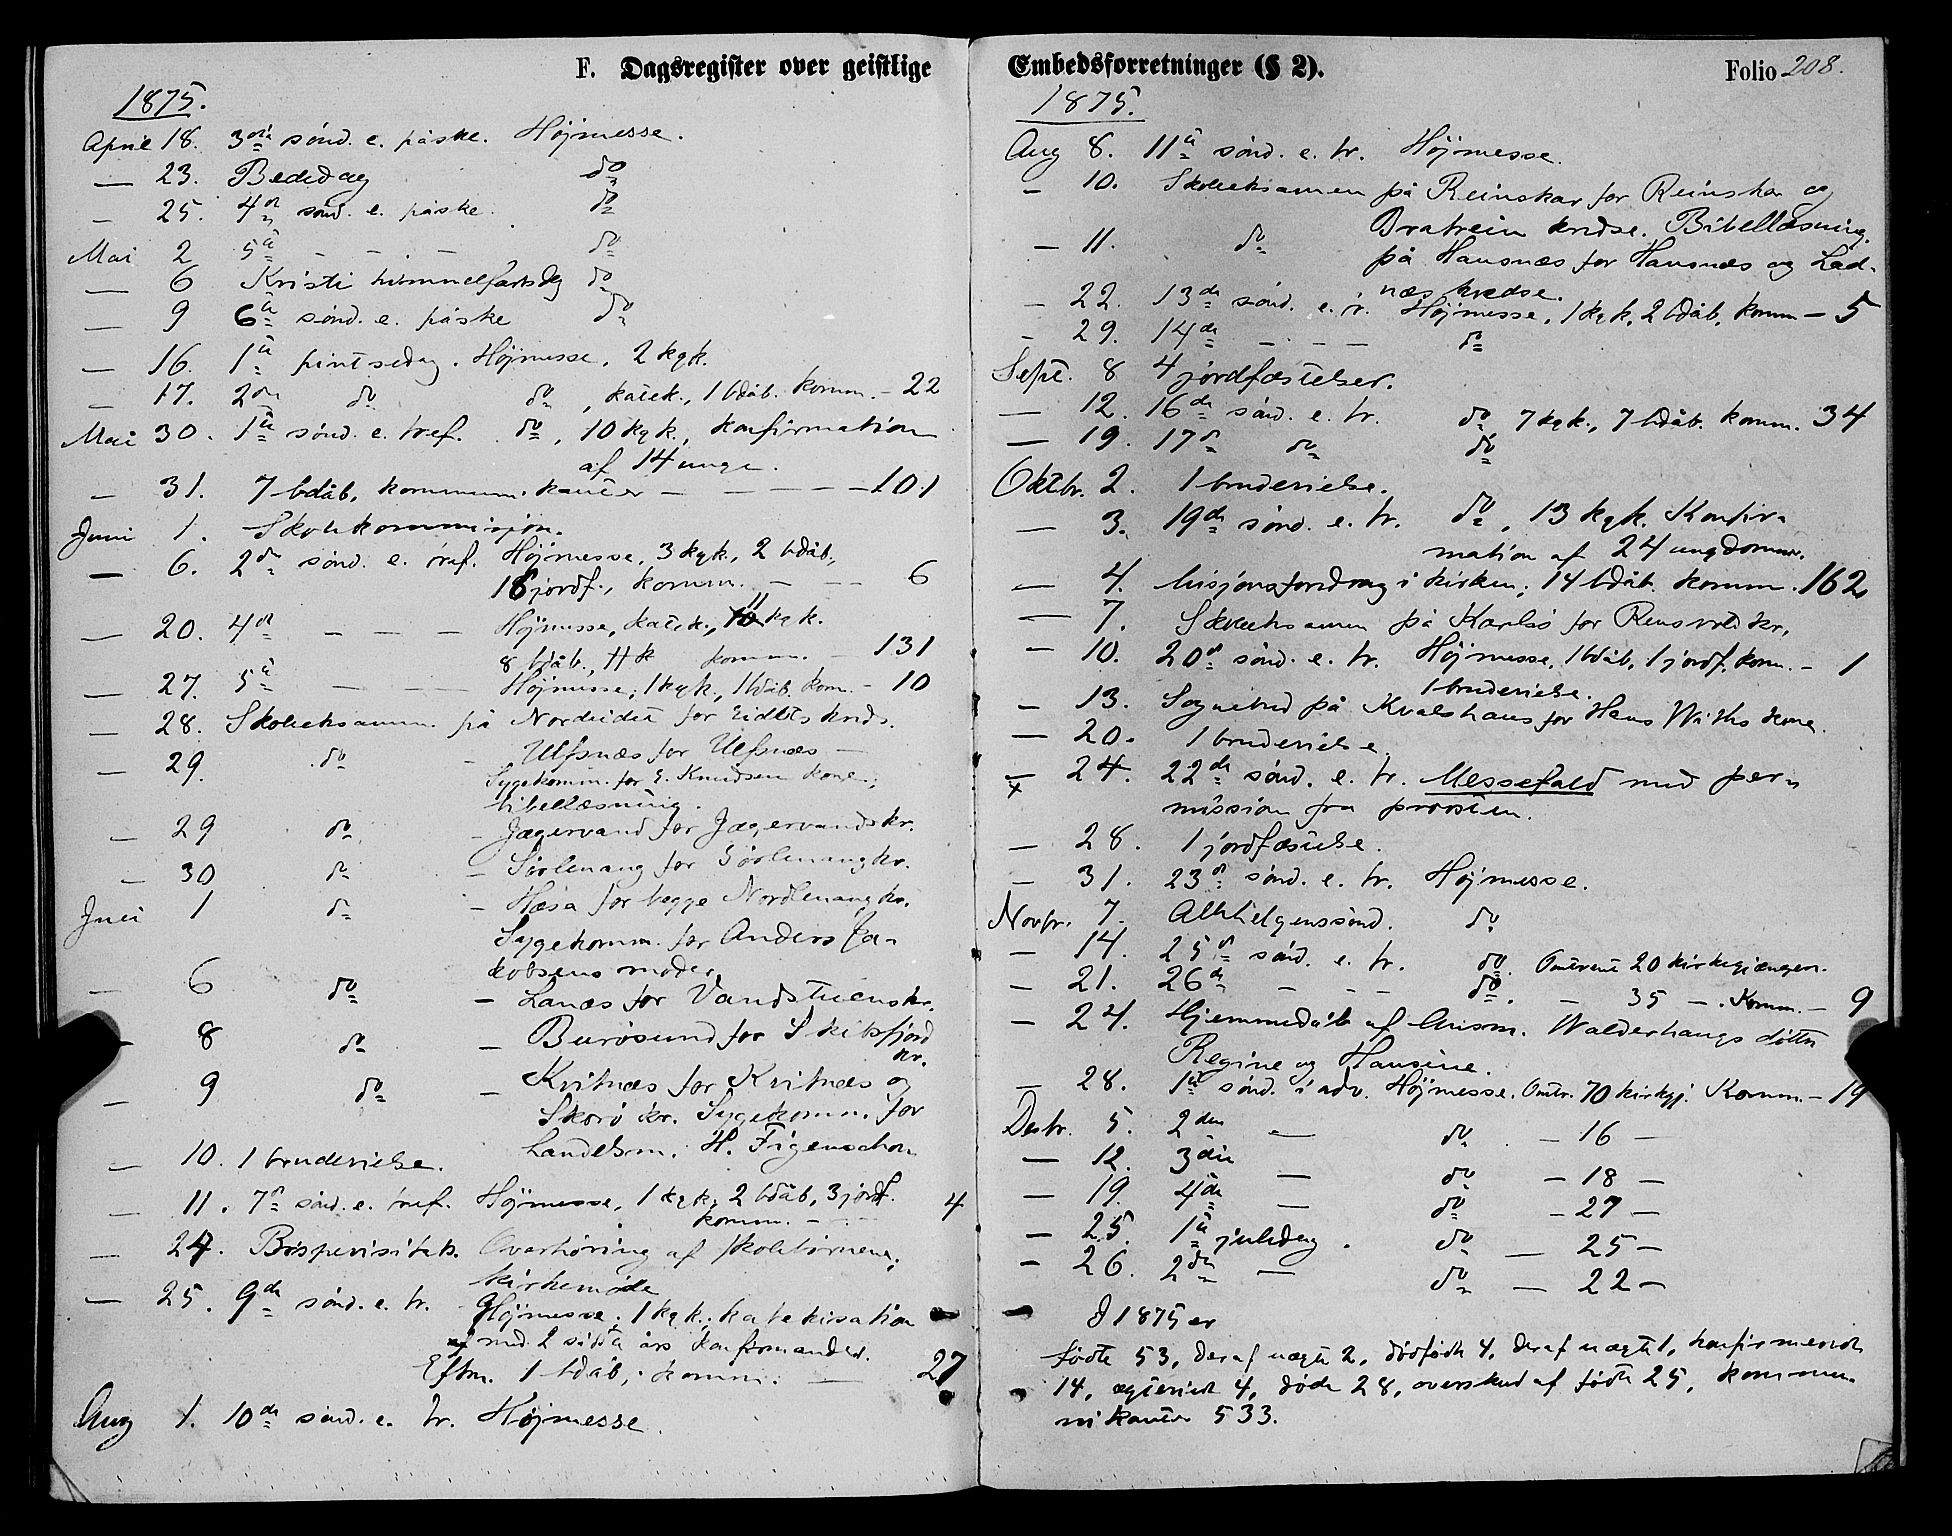 F. Dagsregister over geistlige
1875.
April 18. 3die sönd. e. påske. Höjmesse.
— 23. Bededag do
— 25. 4de sönd. e. påske. do
Mai 2 5te - - - do
— 6 Kristi himmelfartsdg do
— 9 6te sönd. e. påske do
— 16. 1te pintsedag. Höjmesse, 2 kgk.
— 17. 2den do do, katek., 1 bdåb. komm. - 22
Mai 30. 1te sönd. e. tref. do, 10 kgk., konfirmation
af 14 unge.
— 31. 7 bdåb, kommunikanter — — — 101
Juni 1. Skolekommisjon.
— 6. 2den sönd. e. tref. Höjmesse, 3 kgk, 2 bdåb,
16 jordf., komm. — — 6
— 20. 4de — — — Höjmesse, katek., 11 kgk.
8 bdåb., komm. — 131
— 27. 5te — — — Höjmesse, 1 kgk., 1 bdåb. kom. - 10
— 28. Skoleeksamen på Nordeidet for Eidets krids.
— 29. do - Ulfsnæs for Ulfsnæs —
Sygekomm. for E. Knudsen kone;
bibellæsning.
— 29 do - Jægervand for Jægervandskr.
— 30 do - Sörlenang for Sörlenangkr.
Juli 1 do - Hæsa for begge Nordlenangkr.
Sygekomm. for Anders Ja-
kobsens moder
— 6 do - Lanæs for Vandstuenskr.
— 8 do - Burösund for Skibsfjord
kr.
— 9 do - Kvitnæs for Kvitnæs og
Skorö kr. Sygekomm. for
Landelsm. H. Figenschou
— 10. 1 brudevielse.
— 11. 7de sönd. e. tref. Höjmesse, 1 kgk, 2 bdåb, 3 jordf.
komm. — — 4
— 24. Bispevisitats. Overhöring af skolebörnene;
kirkemöde
— 25. 9de sönd. e. tr. Höjmesse; 1 kgk.; katekisation
med 2 sidste års konfirmander.
Eftm. 1 bdåb; komm. — 27
Aug 1. 10de sönd. e. tr. Höjmesse.
Embedsforretninger (§ 2).
Folio 208.
1875.
Aug 8. 11te sönd. e. tr. Höjmesse.
- 10. Skoleeksamen på Reinskar for Reinskar og
Bratrein kredse. Bibellæsning.
- 11. do på Hansnæs for Hansnæs og Lad-
næs kredse.
- 22. 13de sönd. e. tr. Höjmesse, 1 kgk, 2 bdåb, komm — 5
- 29. 14de - - - do
Sept. 8 4 jordfæstelser.
— 12. 16de sönd. e. tr. do 7 kgk., 7 bdåb. komm. 34
— 19. 17de do do
Oktbr. 2. 1 brudevielse.
— 3. 19de sönd. e. tr. do, 13 kgk. Konfir-
mation af 24 ungdomme.
— 4. Misjonsforedrag i kirken; 14 bdåb. komm. 162
— 7. Skoleeksamen på Karlsö for Rensvolkr.
— 10. 20de sönd. e. tr. Höjmesse, 1 bdåb, 1 jordf. kom. - 1
1 brudevielse.
— 13. Sognebud på Kvalshaus for Hans Wiks kone.
— 20. 1 brudevielse.
— 24. 22de sönd. e. tr. Messefald med per-
mission fra provsten.
— 28. 1 jordfæstelse.
— 31. 23de sönd. e. tr. Höjmesse.
Novbr. 7. Allehelgenssönd. do
— 14. 25de sönd. e. tr. do. Omtrent 20 kirkegjængere.
— 21. 26de - - - do. — 35 —. Komm. — 9
— 24. Hjemmedåb af Walderhaugs döttre
Regine og Hansine.
— 28. 1te sönd. i adv. Höjmesse. Omtr. 70 kirkgj. Komm. — 19
Desbr. 5. 2den — do. — 16 —
— 12. 3die — do — 18 —
— 19. 4de — do — 27 —
— 25. 1te juledag. do — 25 —
— 26. 2den — do — 22 —
I 1875 er
födte 53, deraf uægte 2, dödfödte 4, deraf uægte 1, konfirmerede
14, ægteviede 4, döde 28, overskud af födte 25, kommu-
nikanter 533.